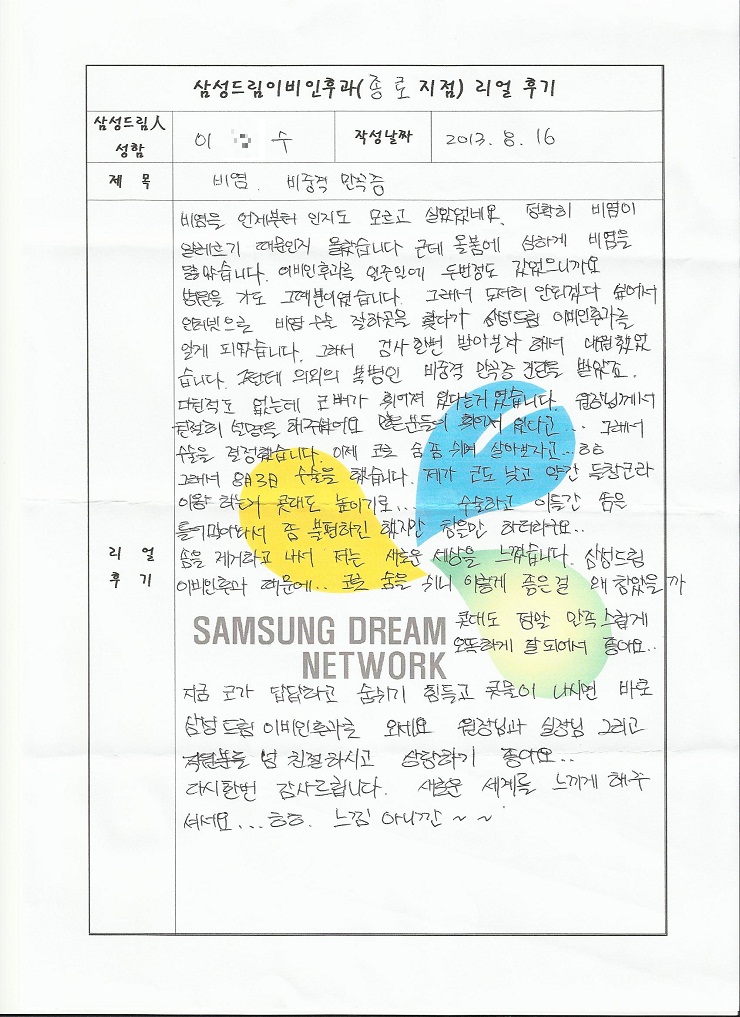 삼성드림이비인후과(종로 지점) 리얼 후기
삼성드림人
성함
이 수
작성날짜
2013. 8. 16
제 목
비염. 비중격 만곡증
리 얼
후 기
비염을 언제부터 인지도 모르고 살았었네요. 정확히 비염이
알레르기 때문인지 몰랐습니다 근데 올봄에 심하게 비염을
앓았습니다. 이비인후과를 일주일에 두번정도 갔었으니까요
병원을 가도 그때뿐이였습니다. 그래서 도저히 안되겠다 싶어서
인터넷으로 비염 수술 잘하는곳을 찾다가 삼성드림 이비인후과를
알게 되었습니다. 그래서 검사 한번 받아보자 해서 내원했었
습니다. 그런데 의외의 복병인 비중격 만곡증 진단을 받았죠.
다친적도 없는데 코뼈가 휘어져 있다는거 였습니다. 원장님께서
친절히 설명을 해주셨어요 많은분들이 휘어져 있다고... 그래서
수술을 결정했습니다. 이제 코로 숨 좀 쉬며 살아보자고...ㅎㅎ
그래서 8月3日 수술을 했습니다. 제가 코도 낮고 약간 들창코라
이왕 하는거 콧대도 높이기로.... 수술하고 이틀간 솜을
틀어막아놔서 좀 불편하긴 했지만 참을만 하더라구요..
솜을 제거하고 나서 저는 새로운 세상을 느꼈습니다. 삼성드림
이비인후과 때문에... 코로 숨을 쉬니 이렇게 좋은걸 왜 참았을까
콧대도 정말 만족스럽게
오똑하게 잘 되어서 좋아요..
SAMSUNG DREAM
NETWORK
지금 코가 답답하고 숨쉬기 힘들고 콧물이 나시면 바로
삼성드림 이비인후과를 오세요 원장님과 실장님 그리고
직원분들 넘 친절하시고 상담하기 좋아요..
다시한번 감사드립니다. 새로운 세계를 느끼게 해주
셔서요...ㅎㅎ. 느낌 아니깐 ~ ~